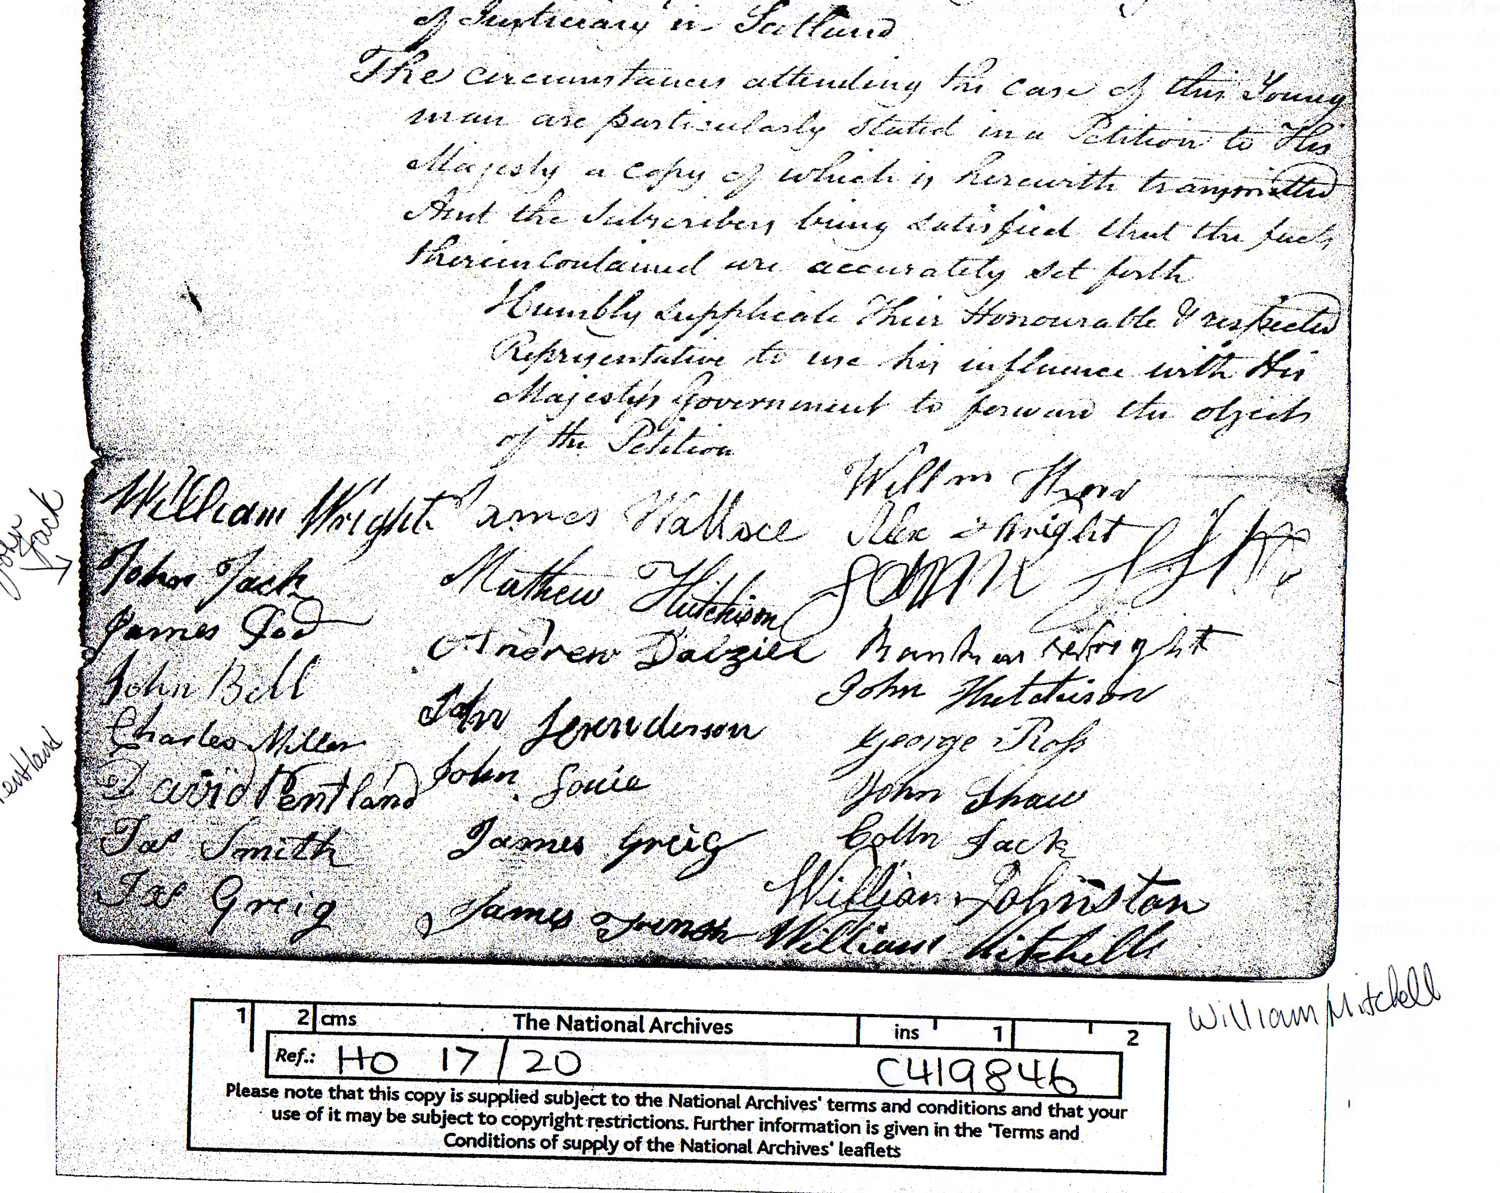 of Justiciary in Scotland
The circumstances attending the case of this Young
man are particularly stated in a Petition to His
Majesty a copy of which is herewith transmitted
And the Subscribers being satisfied that the facts
therein contained are accurately set forth
Humbly supplicate Their Honourable & respected
Representative to use his influence with His
Majesty's Government to forward the objects
of the Petition
William Wright James Wallace Willm
John Jack Mathew Hutchison Alexr Wright
James Tod Andrew Dalziel Wright
John Bell John Henderson John Hutchison
Charles Miller John Louie George Ross
David Pentland James Greig John Shaw
Jas Smith James French Colln Jack
Jas Greig William Johnston
William Mitchell
John Jack
Pentland
William Mitchell
1 2 cms The National Archives ins 1 2
Ref.: HO 17/20 C419846
Please note that this copy is supplied subject to the National Archives' terms and conditions and that your
use of it may be subject to copyright restrictions. Further information is given in the 'Terms and
Conditions of supply of the National Archives' leaflets